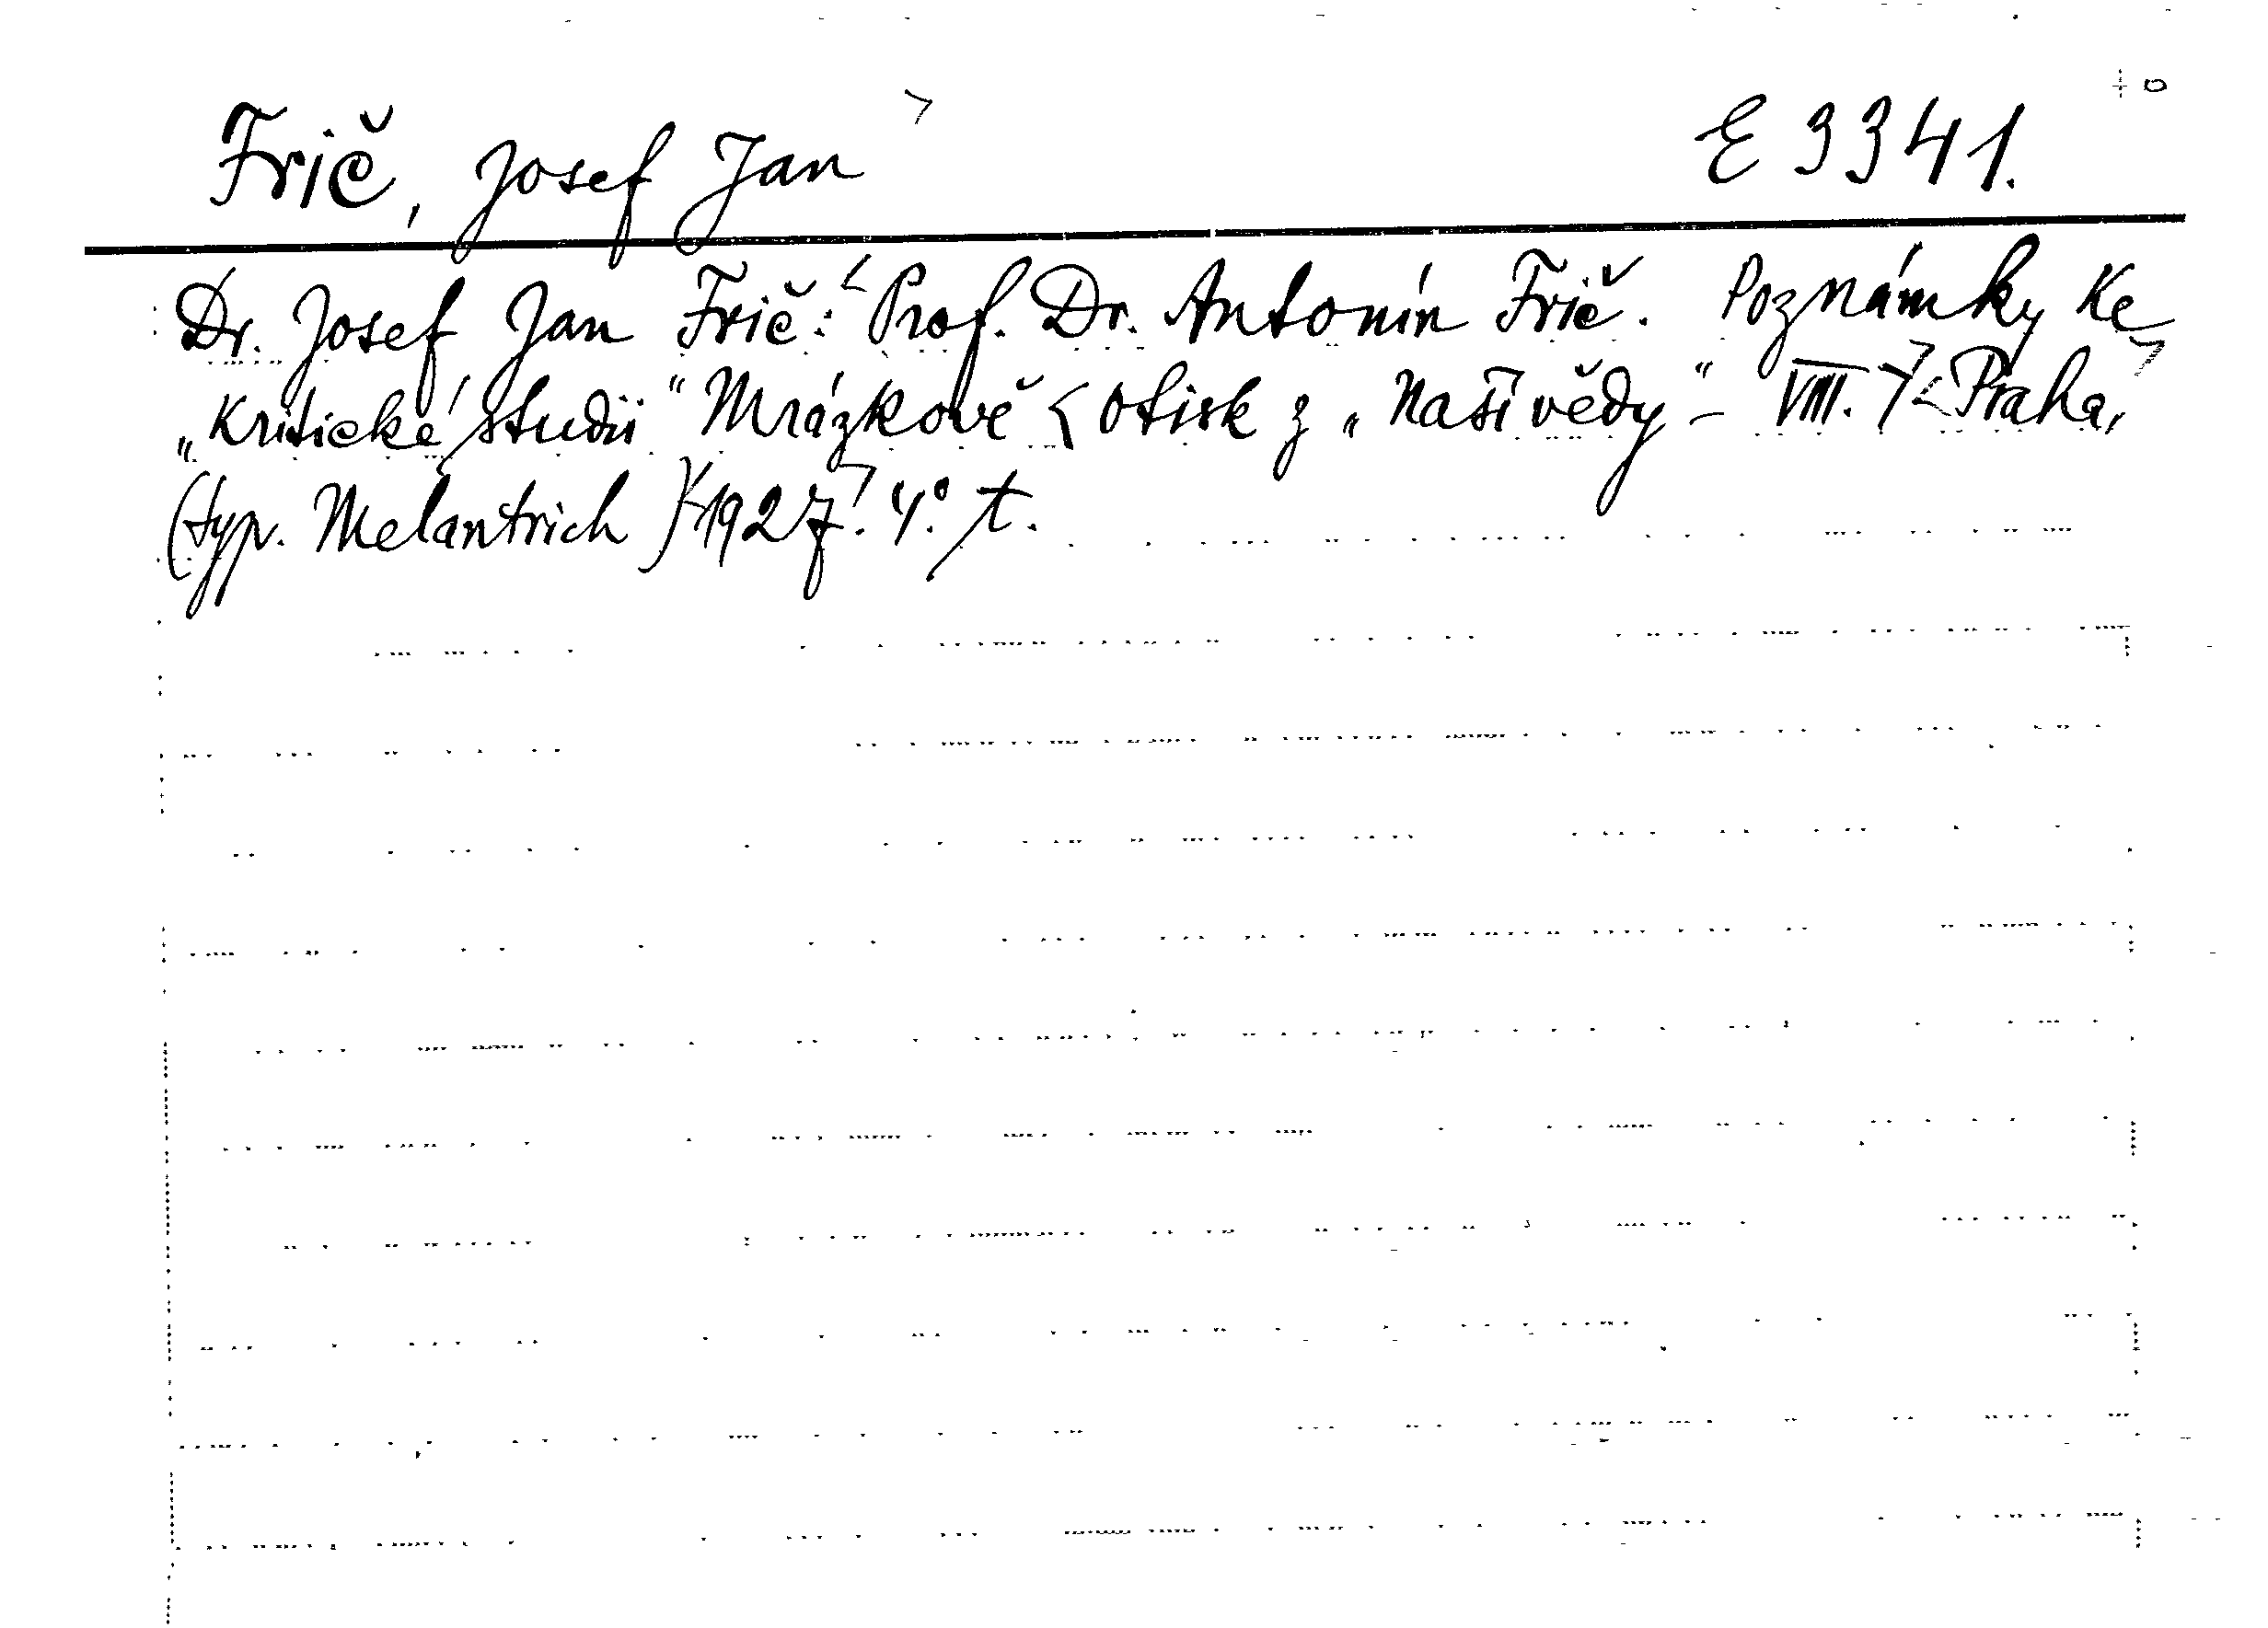 Frič, Josef Jan E 3341.
Dr. Josef Jan Frič: Prof. Dr. Antonín Frič. Poznámky ke
„Kritické studii" Mrázkově <otisk z „Naší vědy" – VIII. 7> <Praha,>
(typ. Melantrich) <1927>. 4°. t.